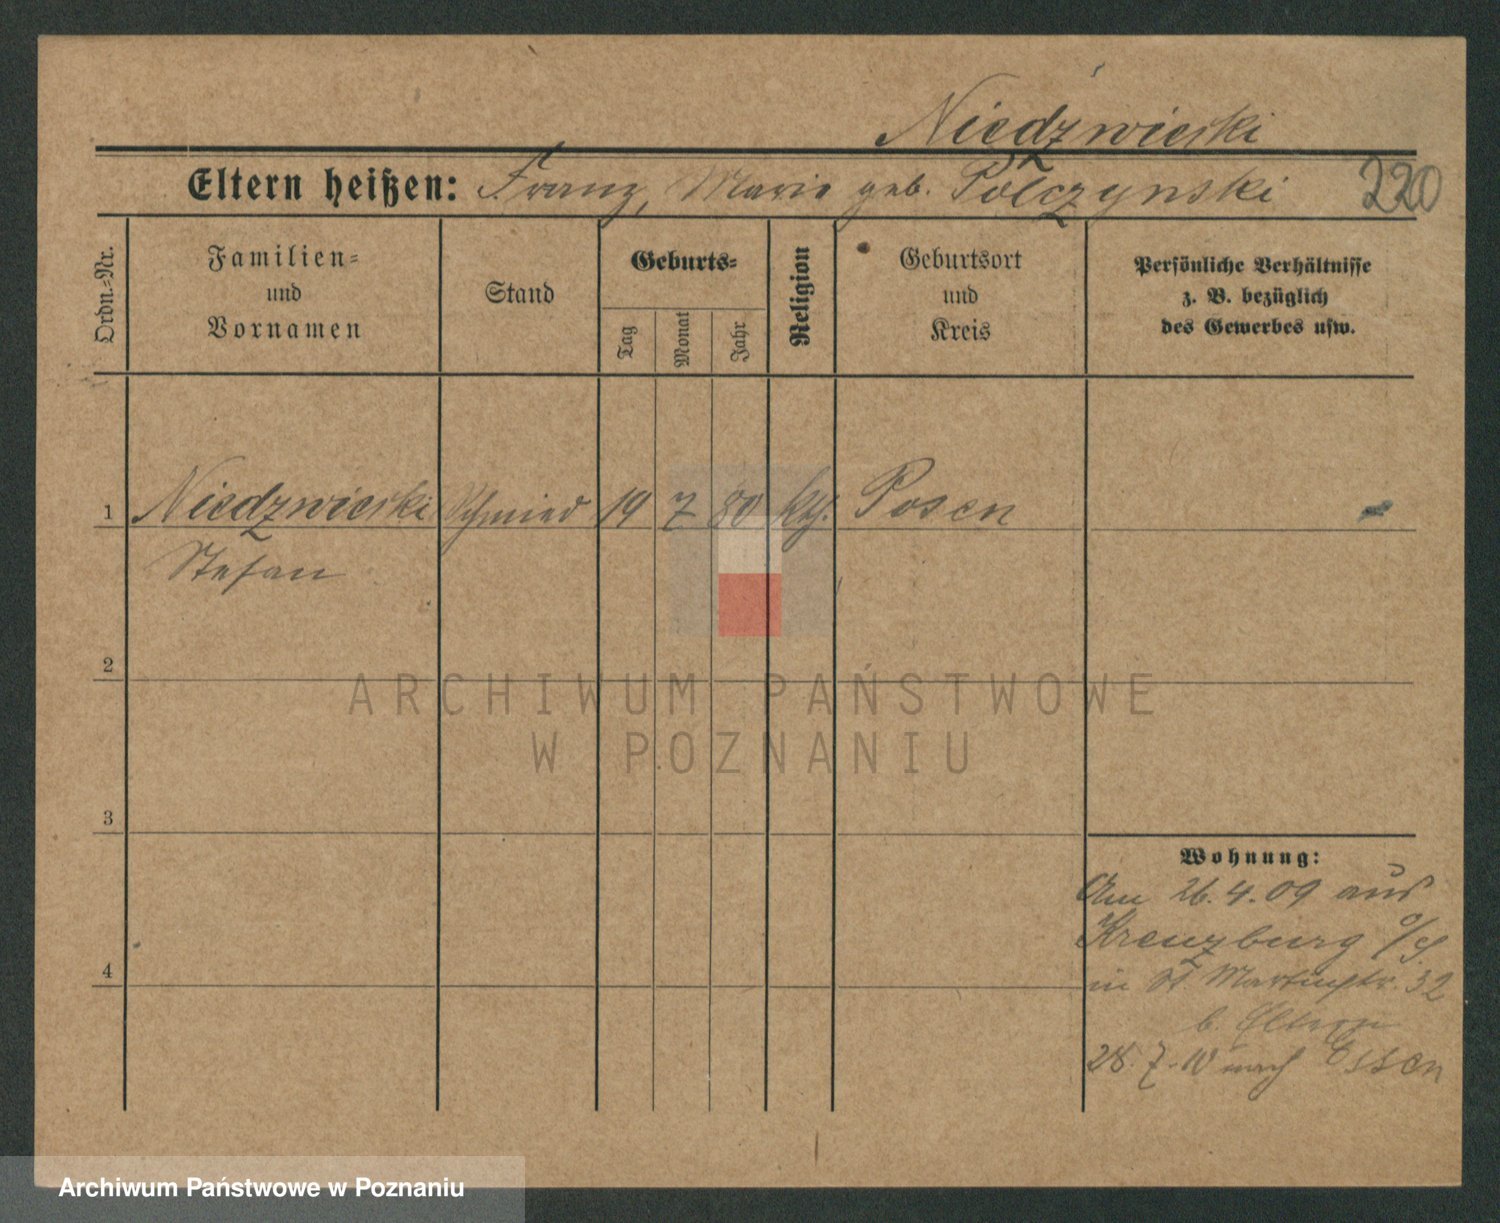 Niedzwiecki
Eltern heißen: Franz, Marie geb. Polczynski 220
Ordn.=Nr.
Familien=
und
Vornamen
Stand
Geburts=
Tag
Monat
Jahr
Religion
Geburtsort
und
Kreis
Persönliche Verhältnisse
z. B. bezüglich
des Gewerbes usw.
1 Niedzwiecki Schmied 19 7 80 kth. Posen
Stefan
2
3
4
Wohnung:
Am 26.4.09 aus
Kreuzburg o/S.
in St Martinstr. 32
b. Eltern
28.7.10 nach Essen
ARCHIWUM PAŃSTWOWE
W POZNANIU
Archiwum Państwowe w Poznaniu